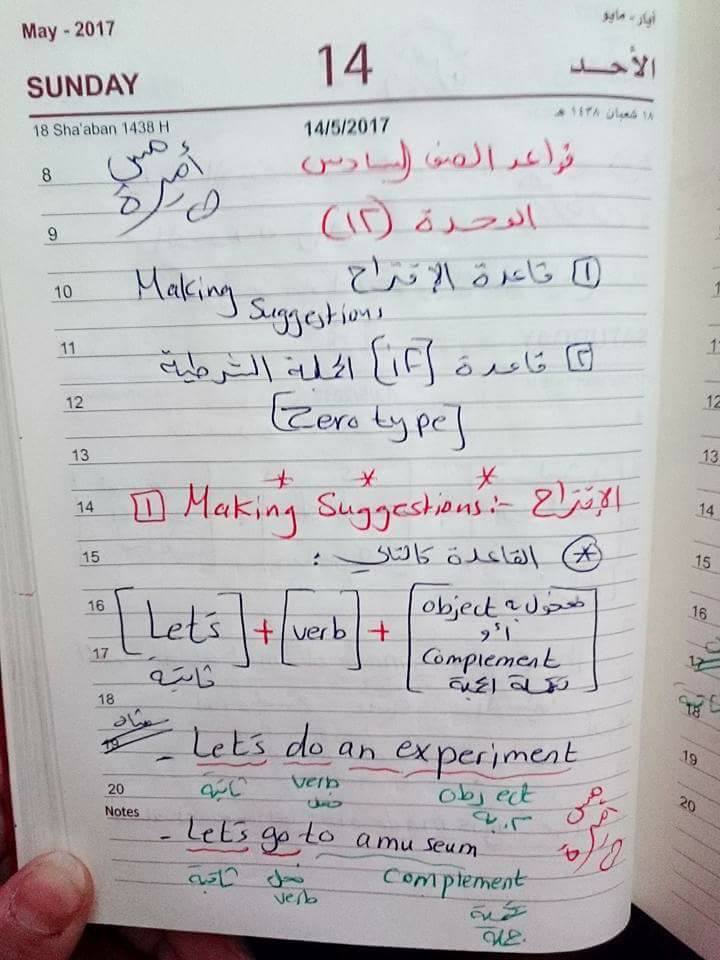 May - 2017
أيار - مايو
SUNDAY 14 الأحد
18 Sha'aban 1438 H 14/5/2017 ١٨ شعبان ١٤٣٨ هـ
8 قواعد الصف السادس
9 الوحدة (١٢)
10 ١ قاعدة الإقتراح Making
Suggestions
11 ٢ قاعدة [if] الجملة الشرطية
12 [Zero type]
13
14 1 Making Suggestions:- الإقتراح
15 * القاعدة كالتالي :
16 [Let's] + [verb] + [object مفعول به
أو
17 Complement
ثابتة تكملة الجملة]
18
19 - Let's do an experiment
20 ثابتة verb object
فعل م. به
Notes
- Let's go to a museum
ثابتة فعل Complement
verb